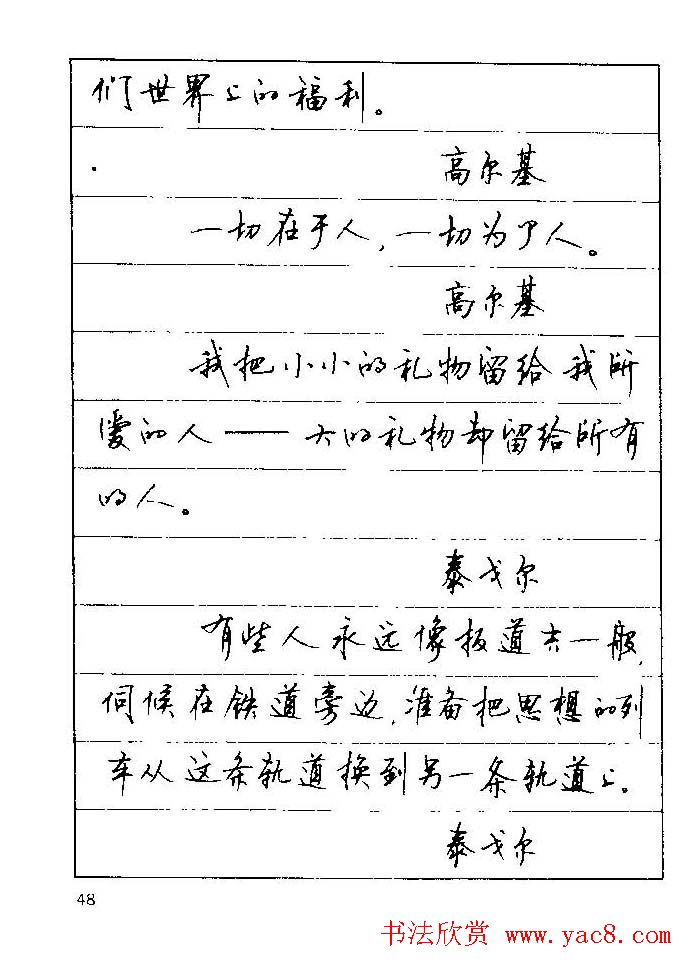 们世界上的福利。
高尔基
一切在于人,一切为了人。
高尔基
我把小小的礼物留给我所
爱的人——大的礼物却留给所有
的人。
泰戈尔
有些人永远像扳道夫一般,
伺候在铁道旁边,准备把思想的列
车从这条轨道换到另一条轨道上。
泰戈尔
48
书法欣赏 www.yac8.com